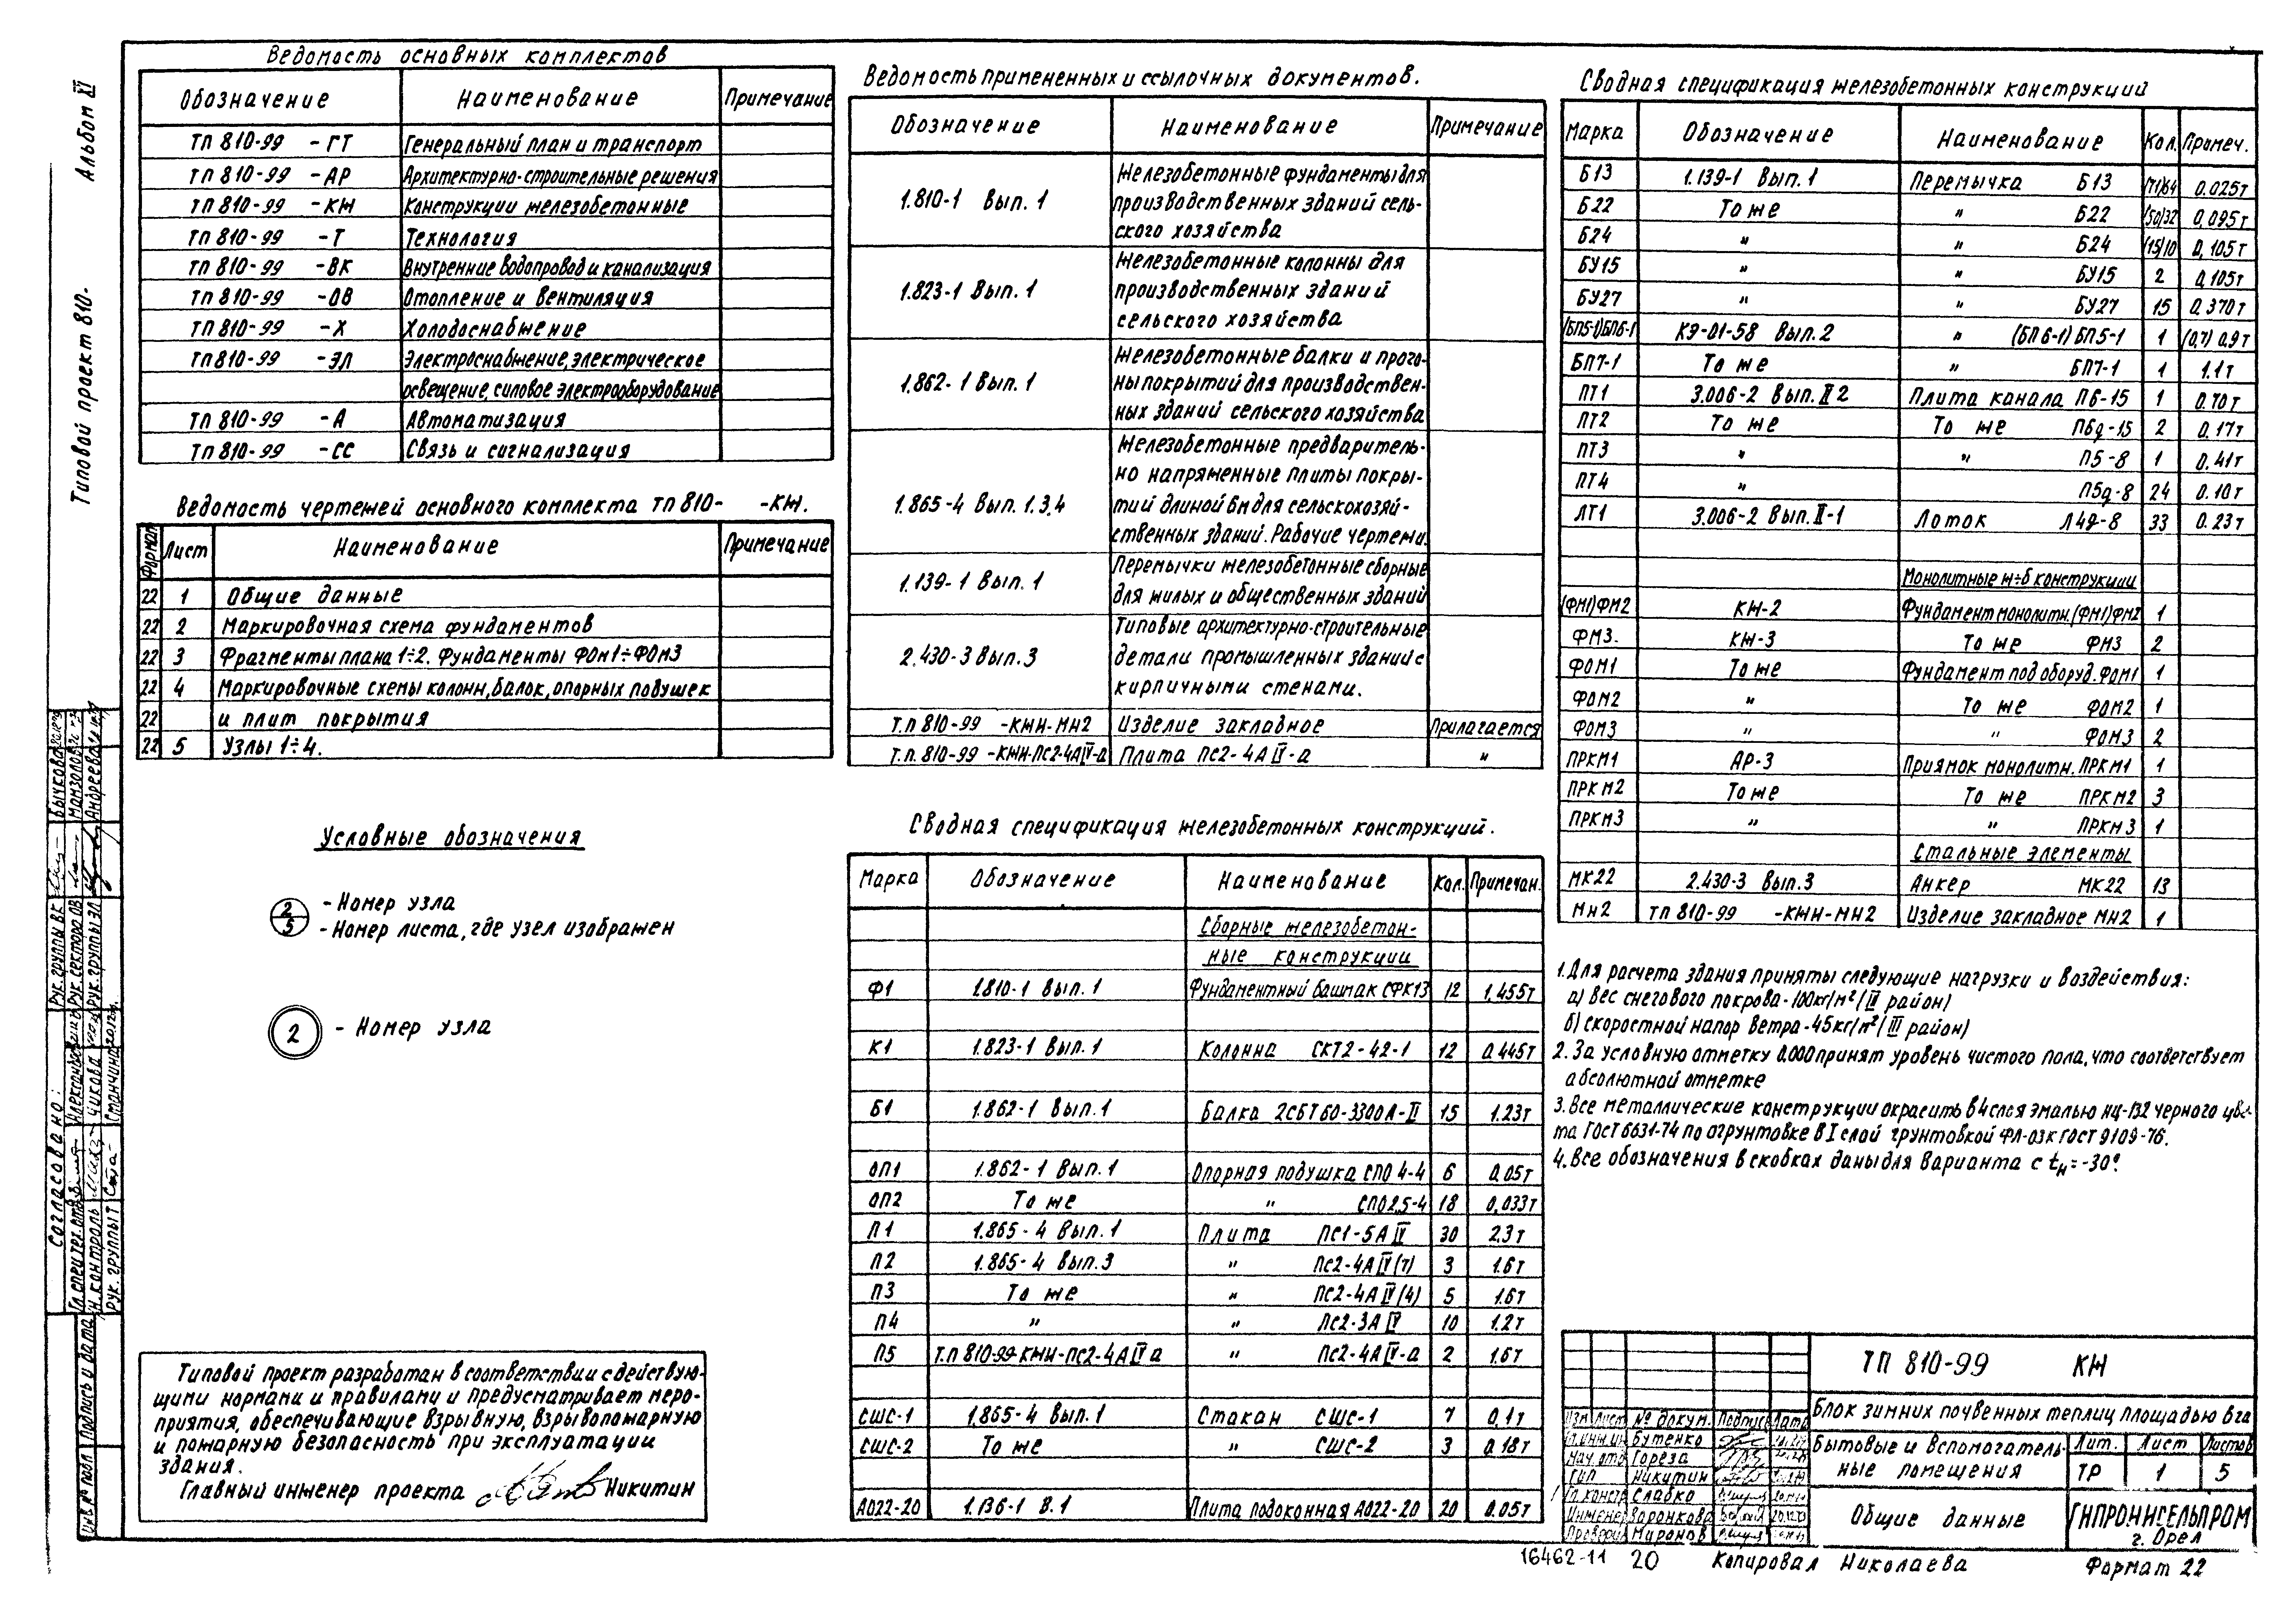 Альбом XI
Типовой проект 810-
Ведомость основных комплектов
Обозначение Наименование Примечание
ТП 810-99 -ГТ Генеральный план и транспорт
ТП 810-99 -АР Архитектурно-строительные решения
ТП 810-99 -КЖ Конструкции железобетонные
ТП 810-99 -Т Технология
ТП 810-99 -ВК Внутренние водопровод и канализация
ТП 810-99 -ОВ Отопление и вентиляция
ТП 810-99 -Х Холодоснабжение
ТП 810-99 -ЭЛ Электроснабжение, электрическое
освещение, силовое электрооборудование
ТП 810-99 -А Автоматизация
ТП 810-99 -СС Связь и сигнализация
Ведомость чертежей основного комплекта ТП 810- -КЖ.
Формат Лист Наименование Примечание
22 1 Общие данные
22 2 Маркировочная схема фундаментов
22 3 Фрагменты плана 1÷2. Фундаменты ФОМ1÷ФОМ3
22 4 Маркировочные схемы колонн, балок, опорных подушек
22 и плит покрытия
22 5 Узлы 1÷4.
Условные обозначения
2 - Номер узла
5 - Номер листа, где узел изображен
2 - Номер узла
Типовой проект разработан в соответствии с действую-
щими нормами и правилами и предусматривает меро-
приятия, обеспечивающие взрывную, взрывопожарную
и пожарную безопасность при эксплуатации
здания.
Главный инженер проекта Никитин
Ведомость примененных и ссылочных документов.
Обозначение Наименование Примечание
1.810-1 Вып. 1 Железобетонные фундаменты для
производственных зданий сель-
ского хозяйства
1.823-1 Вып. 1 Железобетонные колонны для
производственных зданий
сельского хозяйства
1.862-1 Вып. 1 Железобетонные балки и прого-
ны покрытий для производствен-
ных зданий сельского хозяйства
1.865-4 Вып. 1.3,4 Железобетонные предваритель-
но напряженные плиты покры-
тий длиной 6м для сельскохозяй-
ственных зданий. Рабочие чертежи.
1.139-1 Вып. 1 Перемычки железобетонные сборные
для жилых и общественных зданий
2.430-3 Вып. 3 Типовые архитектурно-строительные
детали промышленных зданий с
кирпичными стенами.
Т.П 810-99 -КЖИ-МН2 Изделие закладное Прилагается
Т.П. 810-99 -КЖИ-ПС2-4АIV-а Плита ПС2-4АIV-а "
Сводная спецификация железобетонных конструкций.
Марка Обозначение Наименование Кол. Примечан.
Сборные железобетон-
ные конструкции
Ф1 1.810-1 Вып. 1 Фундаментный башмак СФК13 12 1.455т
К1 1.823-1 Вып. 1 Колонна СКТ2-42-1 12 0.445т
Б1 1.862-1 Вып. 1 Балка 2СБТ60-3300А-II 15 1.23т
ОП1 1.862-1 Вып. 1 Опорная подушка СПО 4-4 6 0.05т
ОП2 То же " СПО2,5-4 18 0,033т
П1 1.865-4 Вып. 1 Плита ПС1-5АIV 30 2.3т
П2 1.865-4 Вып. 3 " ПС2-4АIV(7) 3 1.6т
П3 То же " ПС2-4АIV(4) 5 1.6т
П4 " " ПС2-3АIV 10 1.2т
П5 Т.П 810-99-КЖИ-ПС2-4АIVа " ПС2-4АIV-а 2 1.6т
СШС-1 1.865-4 Вып. 1 Стакан СШС-1 7 0,1т
СШС-2 То же " СШС-2 3 0.18т
АО22-20 1.136-1 В.1 Плита подоконная АО22-20 20 0.05т
Сводная спецификация железобетонных конструкций
Марка Обозначение Наименование Кол. Примеч.
Б13 1.139-1 Вып. 1 Перемычка Б13 (71)64 0.025т
Б22 То же " Б22 (50)32 0,095т
Б24 " " Б24 (15)10 0,105т
БУ15 " " БУ15 2 0,105т
БУ27 " " БУ27 15 0.370т
(БП5-1)БП6-1 КЭ-01-58 Вып. 2 " (БП6-1) БП5-1 1 (0,7) 0,9т
БП7-1 То же " БП7-1 1 1.1т
ПТ1 3.006-2 Вып. II 2 Плита канала П6-15 1 0.70т
ПТ2 То же То же П6д-15 2 0.17т
ПТ3 " " П5-8 1 0.41т
ПТ4 " П5д-8 24 0.10т
ЛТ1 3.006-2 Вып. II-1 Лоток Л4д-8 33 0.23т
Монолитные ж-б конструкции
(ФМ1)ФМ2 КЖ-2 Фундамент монолитн. (ФМ1)ФМ2 1
ФМ3. КЖ-3 То же ФМ3 2
ФОМ1 То же Фундамент под оборуд. ФОМ1 1
ФОМ2 " То же ФОМ2 1
ФОМ3 " " ФОМ3 2
ПРКМ1 АР-3 Приямок монолитн. ПРКМ1 1
ПРКМ2 То же То же ПРКМ2 3
ПРКМ3 " " ПРКМ3 1
Стальные элементы
МК22 2.430-3 Вып. 3 Анкер МК22 13
МН2 ТП 810-99 -КЖИ-МН2 Изделие закладное МН2 1
1. Для расчета здания приняты следующие нагрузки и воздействия:
а) вес снегового покрова-100кг/м² (III район)
б) скоростной напор ветра-45кг/м² (III район)
2. За условную отметку 0.000 принят уровень чистого пола, что соответствует
абсолютной отметке
3. Все металлические конструкции окрасить в 4 слоя эмалью НЦ-132 черного цве-
та ГОСТ 6631-74 по огрунтовке в I слой грунтовкой ФЛ-03к ГОСТ 9109-76.
4. Все обозначения в скобках даны для варианта с tн=-30°.
ТП 810-99 КЖ
Блок зимних почвенных теплиц площадью 6га
Бытовые и вспомогатель-
ные помещения
Лит. Лист Листов
ТР 1 5
Общие данные
ГИПРОНИСЕЛЬПРОМ
г. Орел
Изм Лист № докум. Подпись Дата
Гл.инж.ин Бутенко
Нач. отд Гореза
ГИП Никитин
Гл.констр Слабко
Инженер Воронкова
Проверил Миронов
16462-11 20 Копировал Николаева Формат 22
Согласовано:
Рук. группы ВК Бычкова
Рук. сектора ОВ
Рук. группы ЭЛ Андреева
Гл. спец. тех. отд.
Н. контроль Чикова
Рук. группы Т Станчина
Подпись и дата
Инв № подл